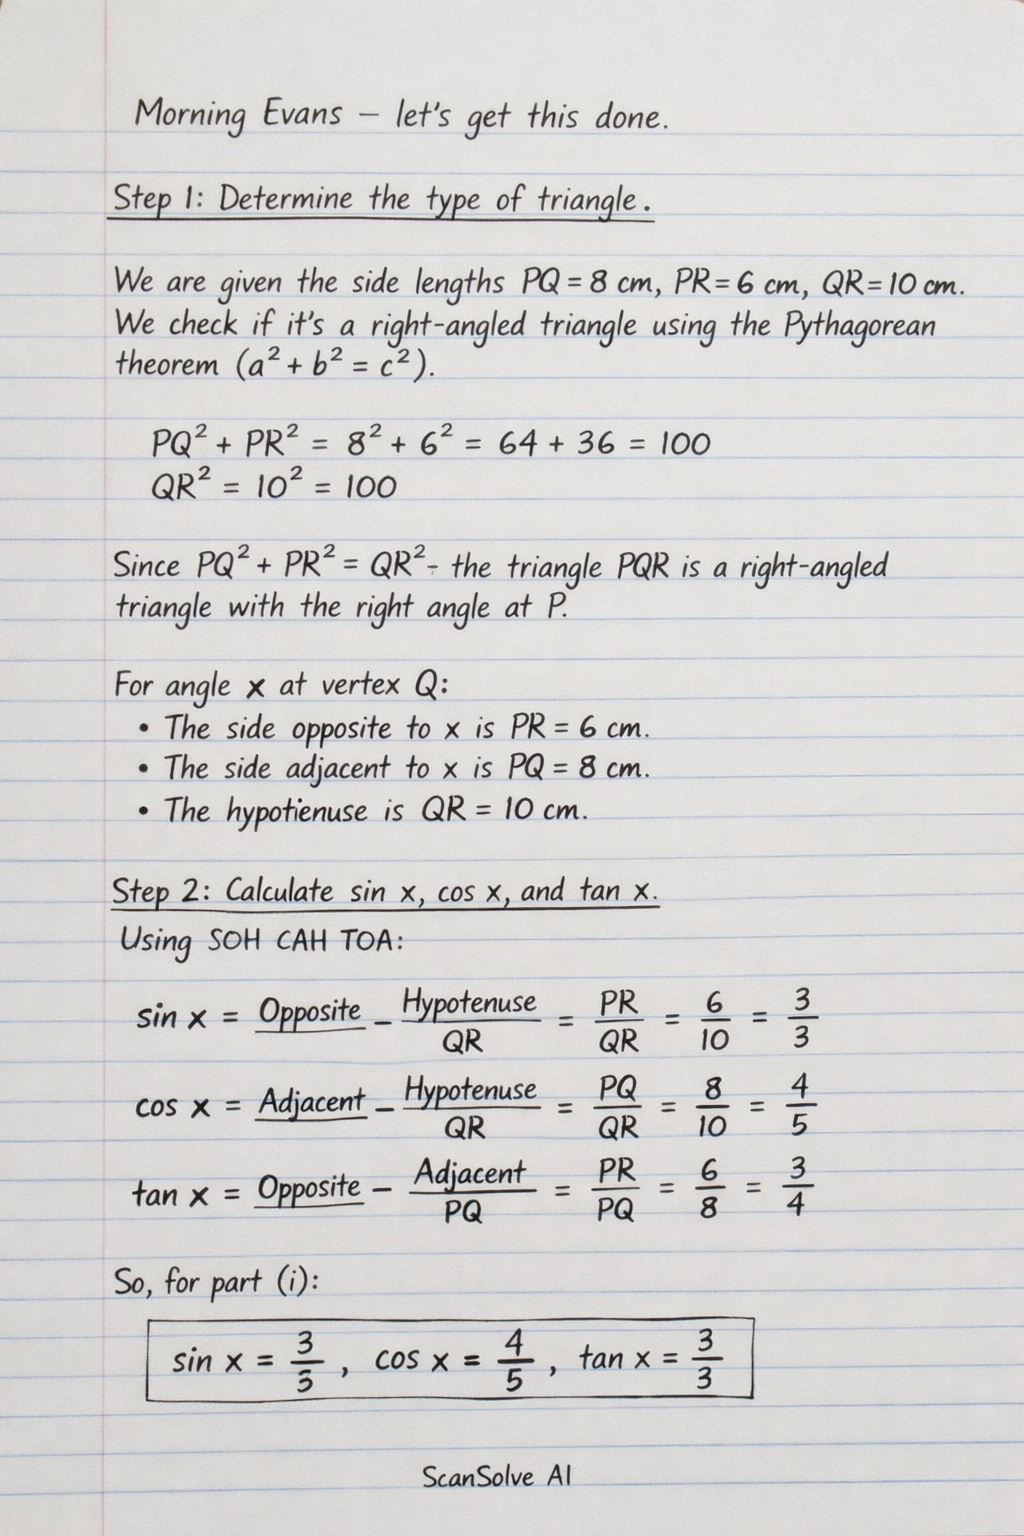 Morning Evans – let's get this done.
Step 1: Determine the type of triangle.
We are given the side lengths PQ = 8 cm, PR = 6 cm, QR = 10 cm.
We check if it's a right-angled triangle using the Pythagorean
theorem (a² + b² = c²).
PQ² + PR² = 8² + 6² = 64 + 36 = 100
QR² = 10² = 100
Since PQ² + PR² = QR²- the triangle PQR is a right-angled
triangle with the right angle at P.
For angle x at vertex Q:
• The side opposite to x is PR = 6 cm.
• The side adjacent to x is PQ = 8 cm.
• The hypotienuse is QR = 10 cm.
Step 2: Calculate sin x, cos x, and tan x.
Using SOH CAH TOA:
sin x = Opposite – Hypotenuse/QR = PR/QR = 6/10 = 3/3
cos x = Adjacent – Hypotenuse/QR = PQ/QR = 8/10 = 4/5
tan x = Opposite – Adjacent/PQ = PR/PQ = 6/8 = 3/4
So, for part (i):
sin x = 3/3, cos x = 4/5, tan x = 3/3
ScanSolve AI